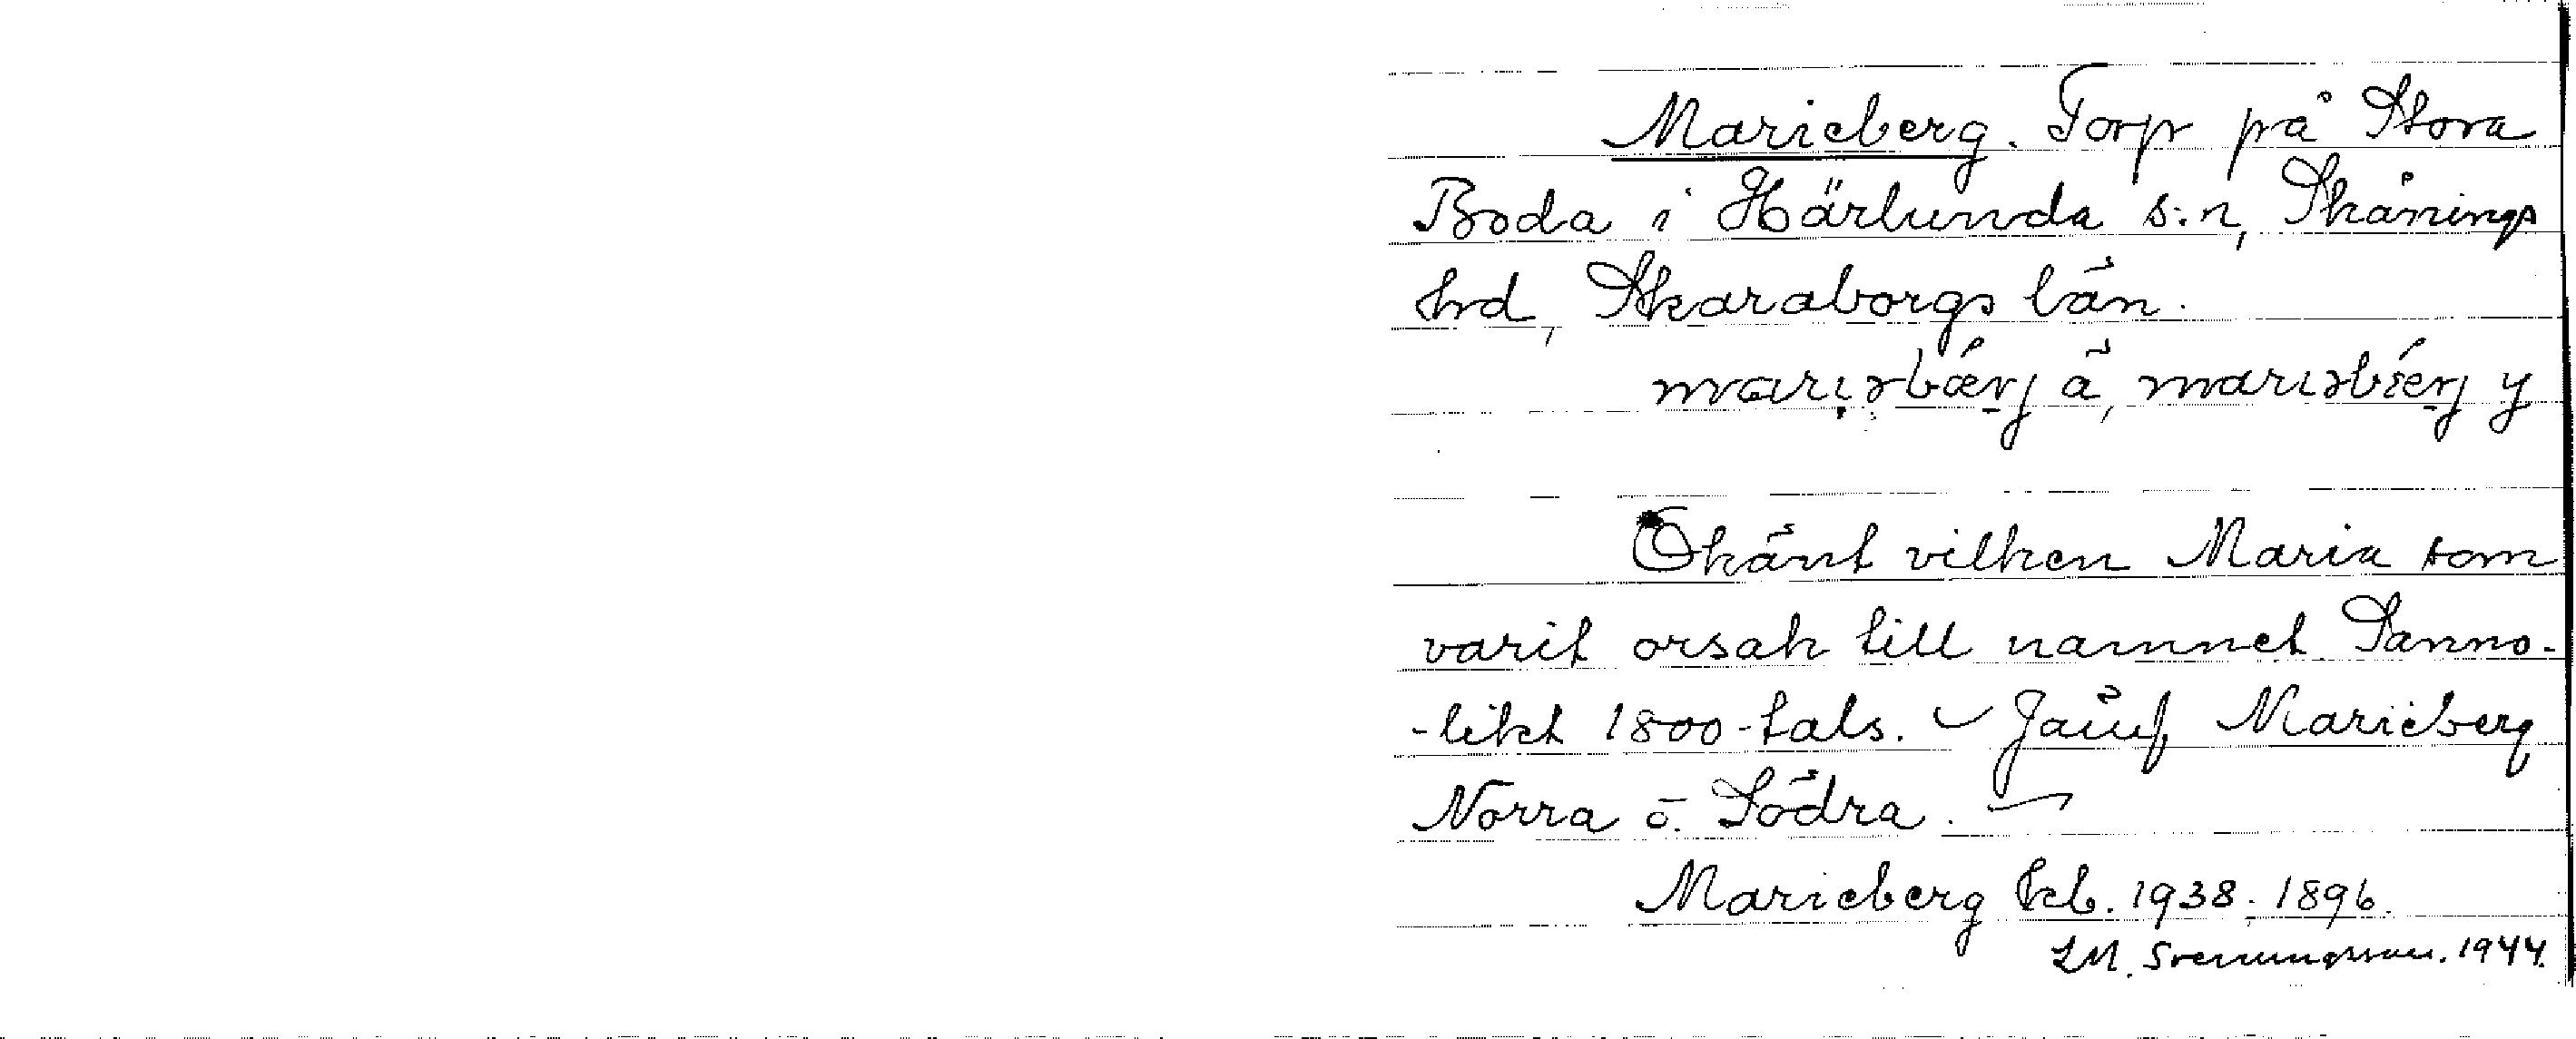 Marieberg. Torp på Stora
Boda i Härlunda s:n, Skånings
hrd, Skaraborgs län.
marıəbǽrj ä, marıəbǽrj y
Okänt vilken Maria som
varit orsak till namnet Sanno-
-likt 1800-tals. Jämf. Marieberg
Norra o. Södra.
Marieberg kb. 1938; 1896.
LM. Svenungsson. 1944.